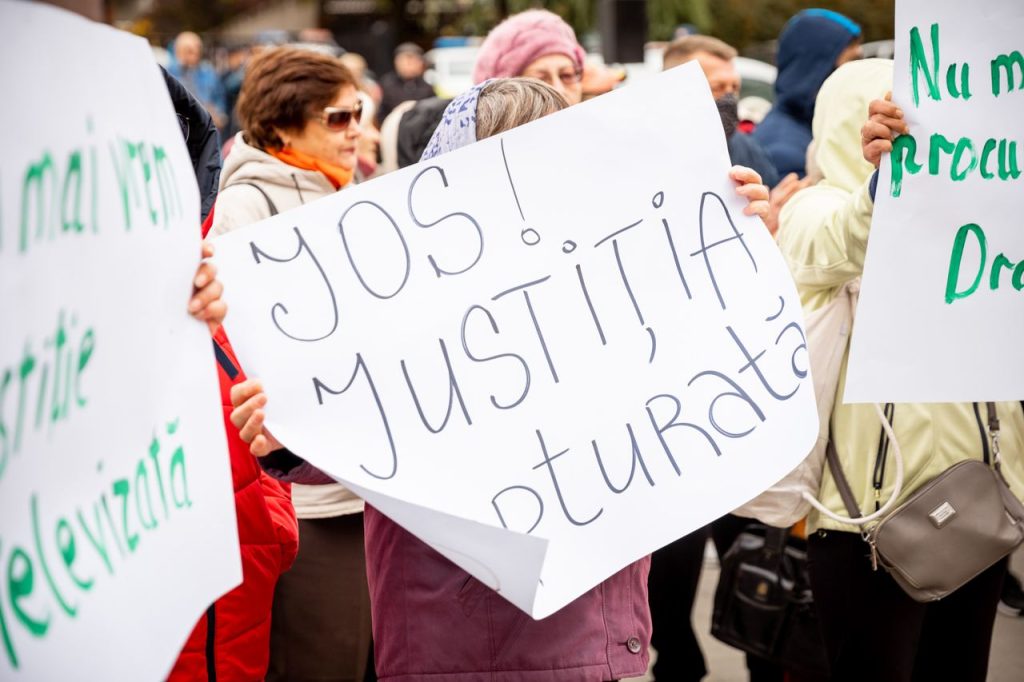 mai vrem
stiție
Televizată
JOS!
JUSTIȚIA
pturată
Nu m
procu
Dra